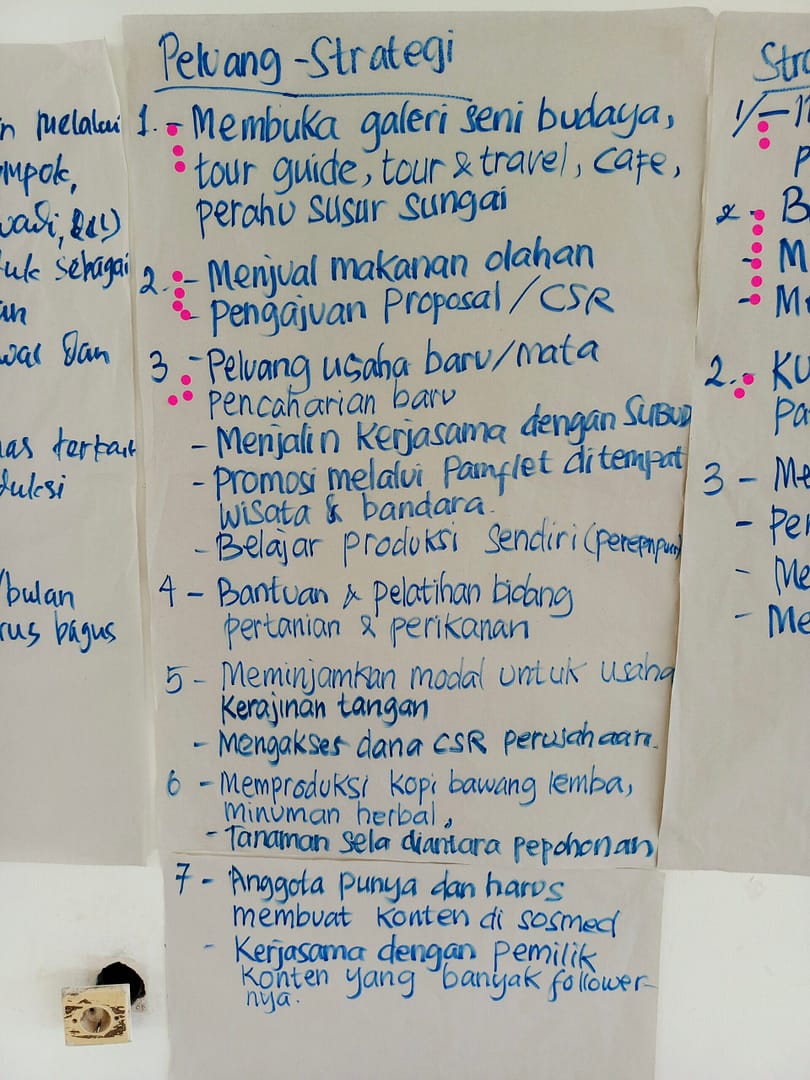 n melalui
mpok,
uk sebagai
an
was dan
nas terkait
duksi
/bulan
rus bagus
Peluang - Strategi
1. - Membuka galeri seni budaya,
tour guide, tour & travel, cafe,
perahu susur sungai
2. - Menjual makanan olahan
- Pengajuan Proposal / CSR
3 - Peluang usaha baru/mata
pencaharian baru
- Menjalin Kerjasama dengan SUBUD
- Promosi melalui Pamflet ditempat
wisata & bandara.
- Belajar produksi sendiri (perempuan)
4 - Bantuan & pelatihan bidang
pertanian & perikanan
5 - Meminjamkan modal untuk usaha
Kerajinan tangan
- Mengakses dana CSR perusahaan.
6 - Memproduksi kopi bawang lemba,
minuman herbal,
- Tanaman sela diantara pepohonan
7 - Anggota punya dan harus
membuat konten di sosmed
- Kerjasama dengan pemilik
konten yang banyak follower-
nya.
Stra
1/ - M
P
2 - B
- M
- Me
2. - KU
Pa
3 - Me
- Per
- Me
- Me